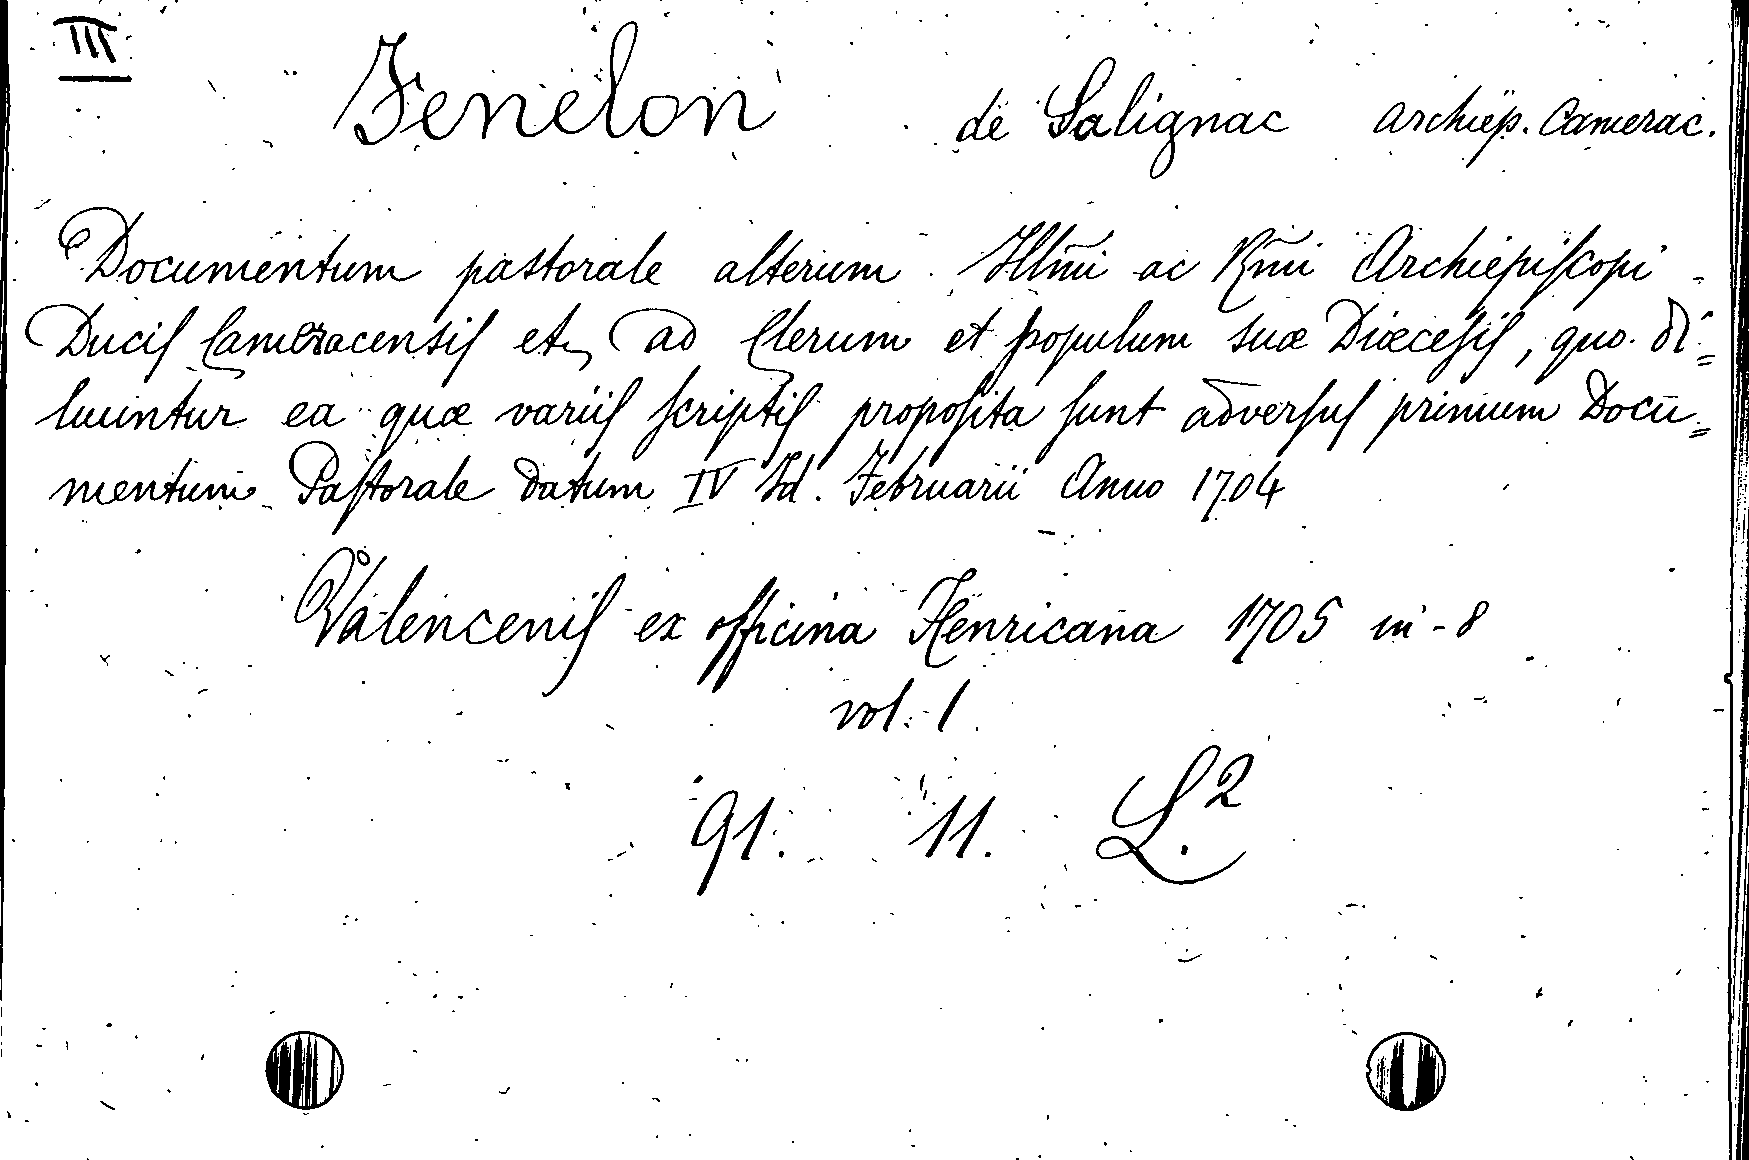 III
Fenelon de Salignac archiep. Camerac.
Documentum pastorale alterum Illm̃i ac Rm̃i Archiepiscopi
Ducis Cameracensis etc, ad Clerum et populum suæ Diœcesis, quo di=
luuntur ea quæ variis scriptis proposita sunt adversus primum Docu=
mentum Pastorale datum IV Id. Februarii Anno 1704
Valencenis ex officina Henricana 1705 in-8
vol. 1
91. 11. L.²